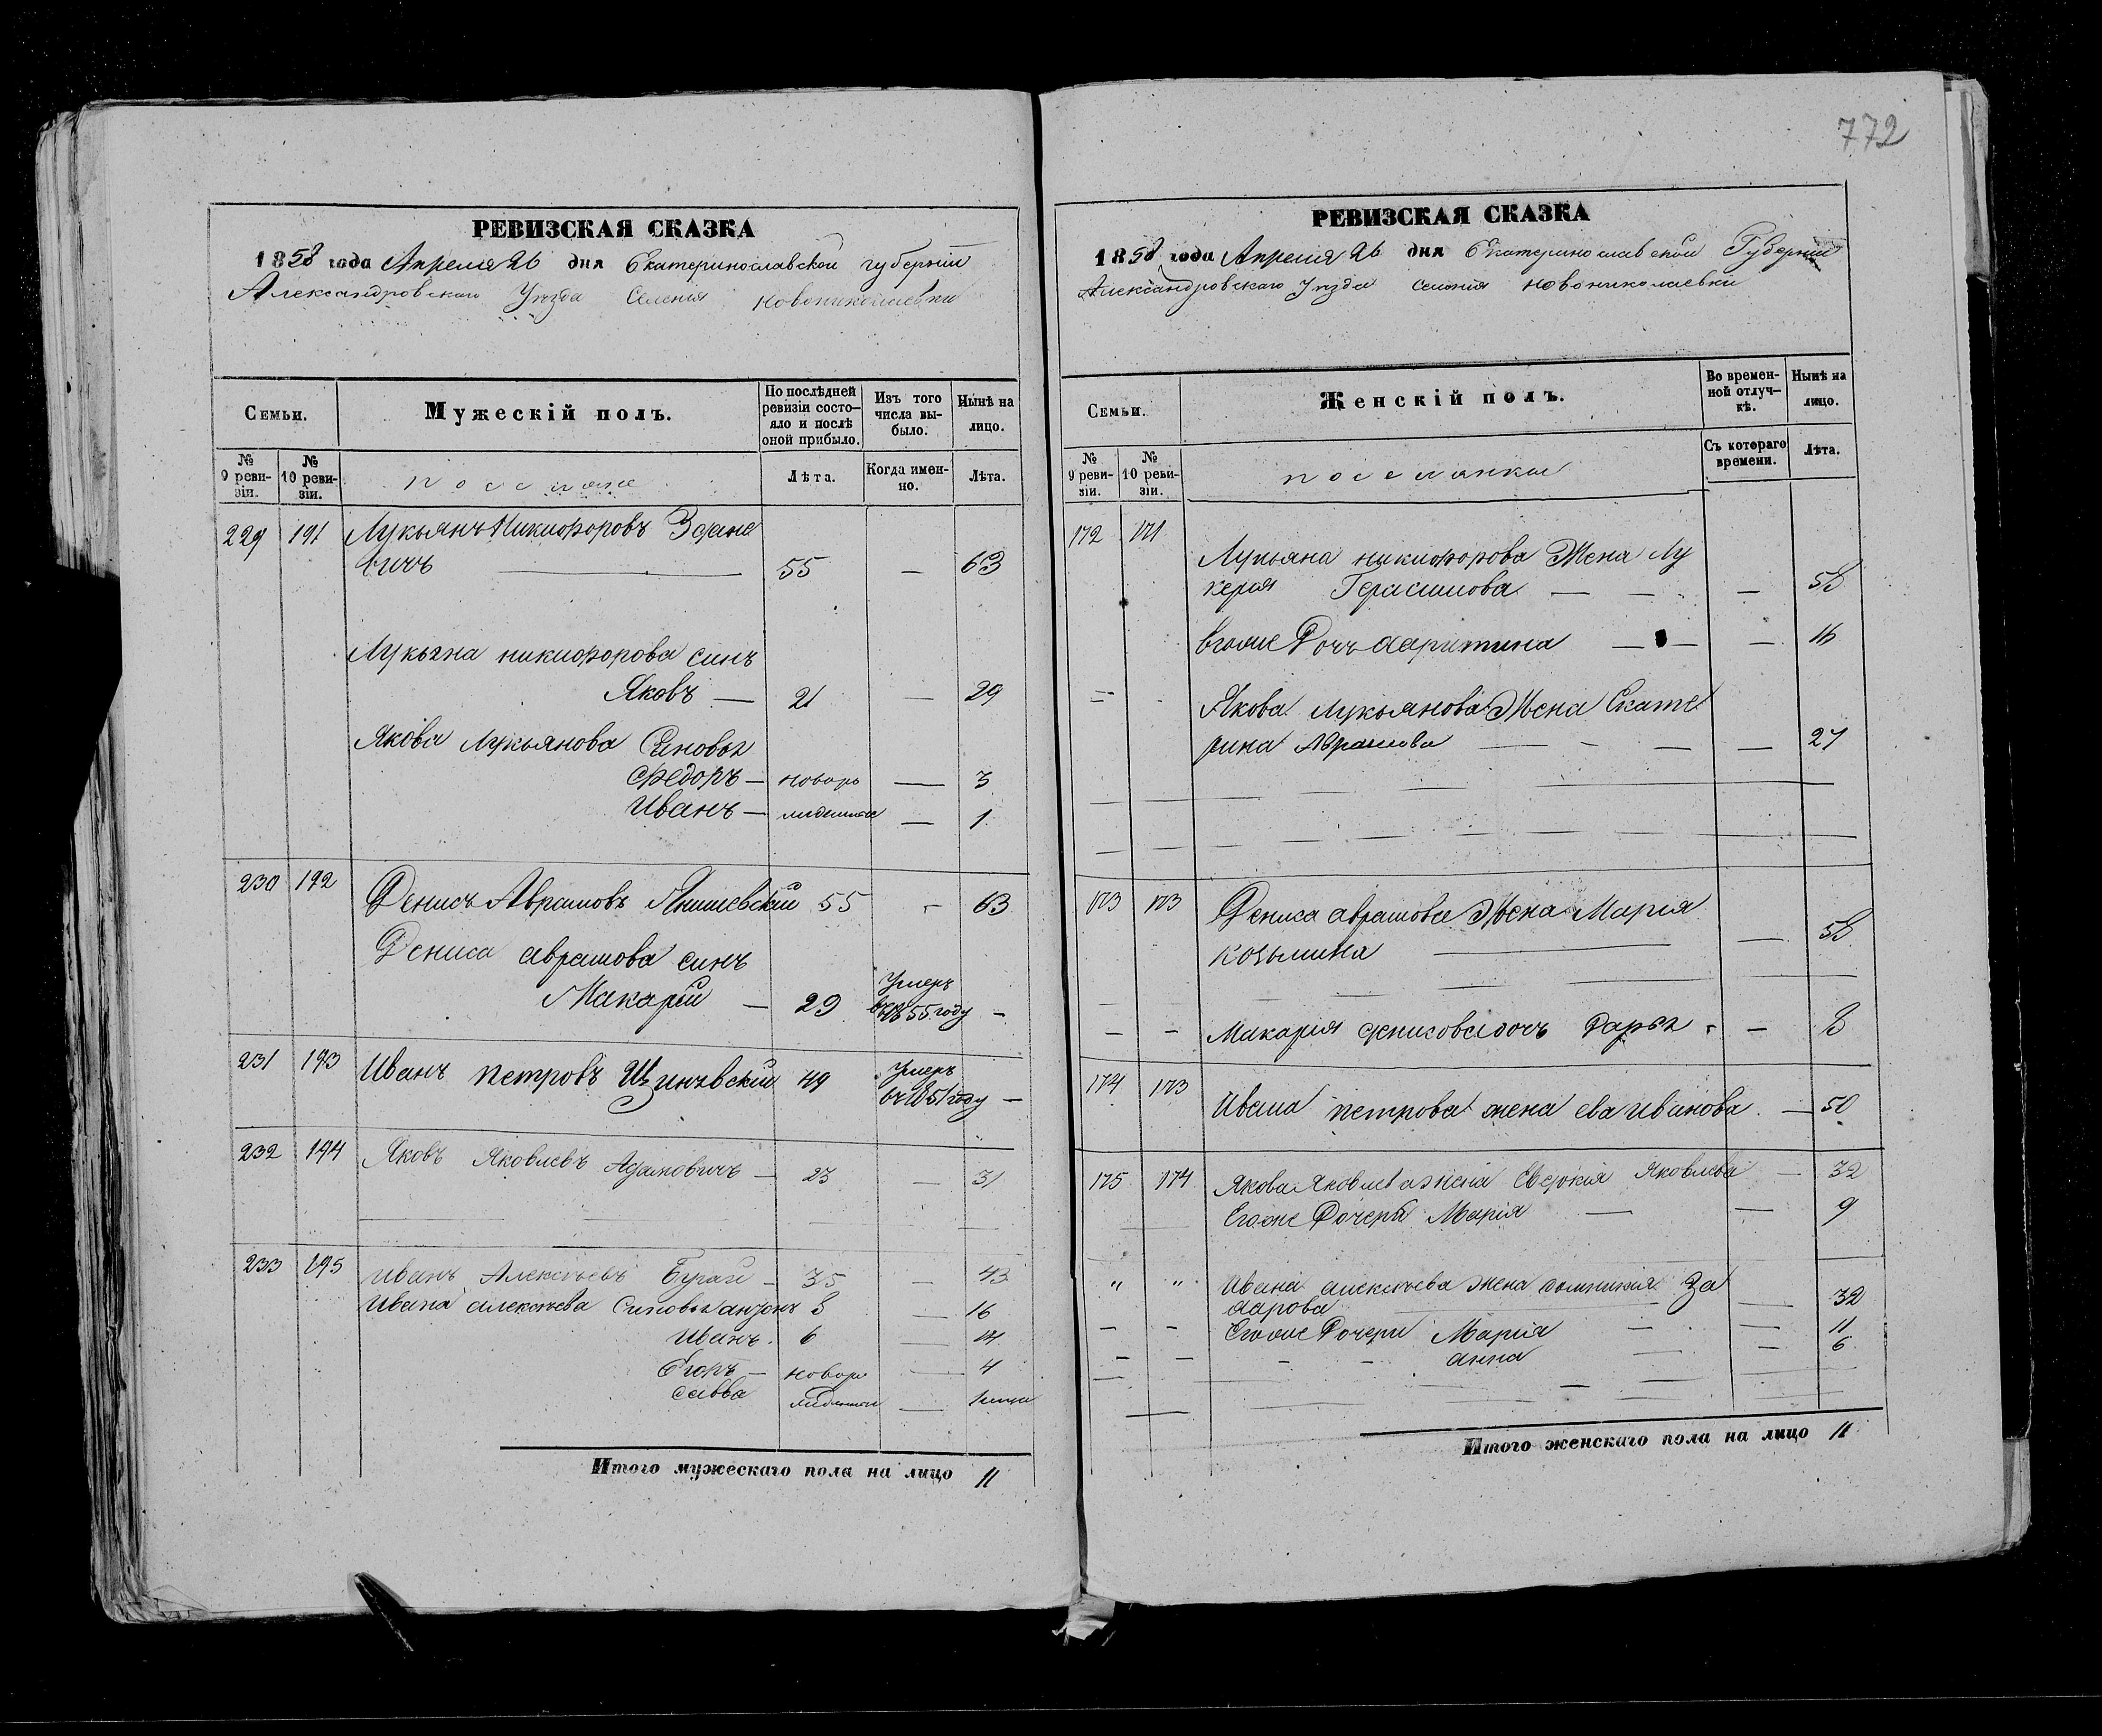 772
РЕВИЗСКАЯ СКАЗКА
1858 года Апреля 26 дня Екатеринославской губерніи
Александровскаго Уѣзда Селенія Новониколаевки
Семьи.
Мужескій полъ.
По послѣдней ревизіи состо-
яло и послѣ оной прибыло.
Изъ того числа вы-
было.
Нынѣ на лицо.
№ 9 реви-
зіи.
№ 10 реви-
зіи.
поселяне
Лѣта.
Когда имен-
но.
Лѣта.
229 191 Лукьянъ Никифоровъ Здане
вичъ 55 — 63
Лукьяна никифорова синъ
Яковъ — 21 — 29
Якова Лукьянова Синовья
Федоръ — новоро — 3
Иванъ — — 1
230 192 Денисъ Аврамовъ Янишевскій 55 - 63
Дениса аврамова синъ
Макарій — 29 Умеръ въ 1855 году —
231 193 Иванъ петровъ 49 Умеръ въ 1851 году —
232 194 Яковъ Яковлевъ Адамовичъ — 23 — 31
233 195 Иванъ Алексѣевъ Бугай — 35 — 43
Ивана алексѣева Синовья антонъ 8 — 16
Иванъ. 6 — 14
Егоръ — новоро — 4
савва —
Итого мужескаго пола на лицо 11
РЕВИЗСКАЯ СКАЗКА
1858 года Апреля 26 дня Екатеринославской Губерніи
Александровскаго Уѣзда Селенія Новониколаевки
Семьи.
Женскій полъ.
Во времен-
ной отлуч-
кѣ.
Нынѣ на лицо.
№ 9 реви-
зіи.
№ 10 реви-
зіи.
поселянки
Съ котораго времени.
Лѣта.
172 171
Лукьяна никифорова Жена Лу
керия Герасимова — — — 58
Егоже Дочь — — 16
Якова Лукьянова Жена Екате
рина Аврамова — — — 27
173 173 Дениса аврамова Жена Мария
козьмина — — 58
— — Макария денисова дочь Дарья — 8
174 173 Ивана петрова жена ева иванова. — 50
175 174 Якова Яковлева жена Евдокия Яковлева — 32
Егоже Дочери Марія — — 9
" " Ивана алексѣева жена домникия За
харова — — 32
— — Егоже Дочери Марія — — 11
— — - - анна — — 6
Итого женскаго пола на лицо 11